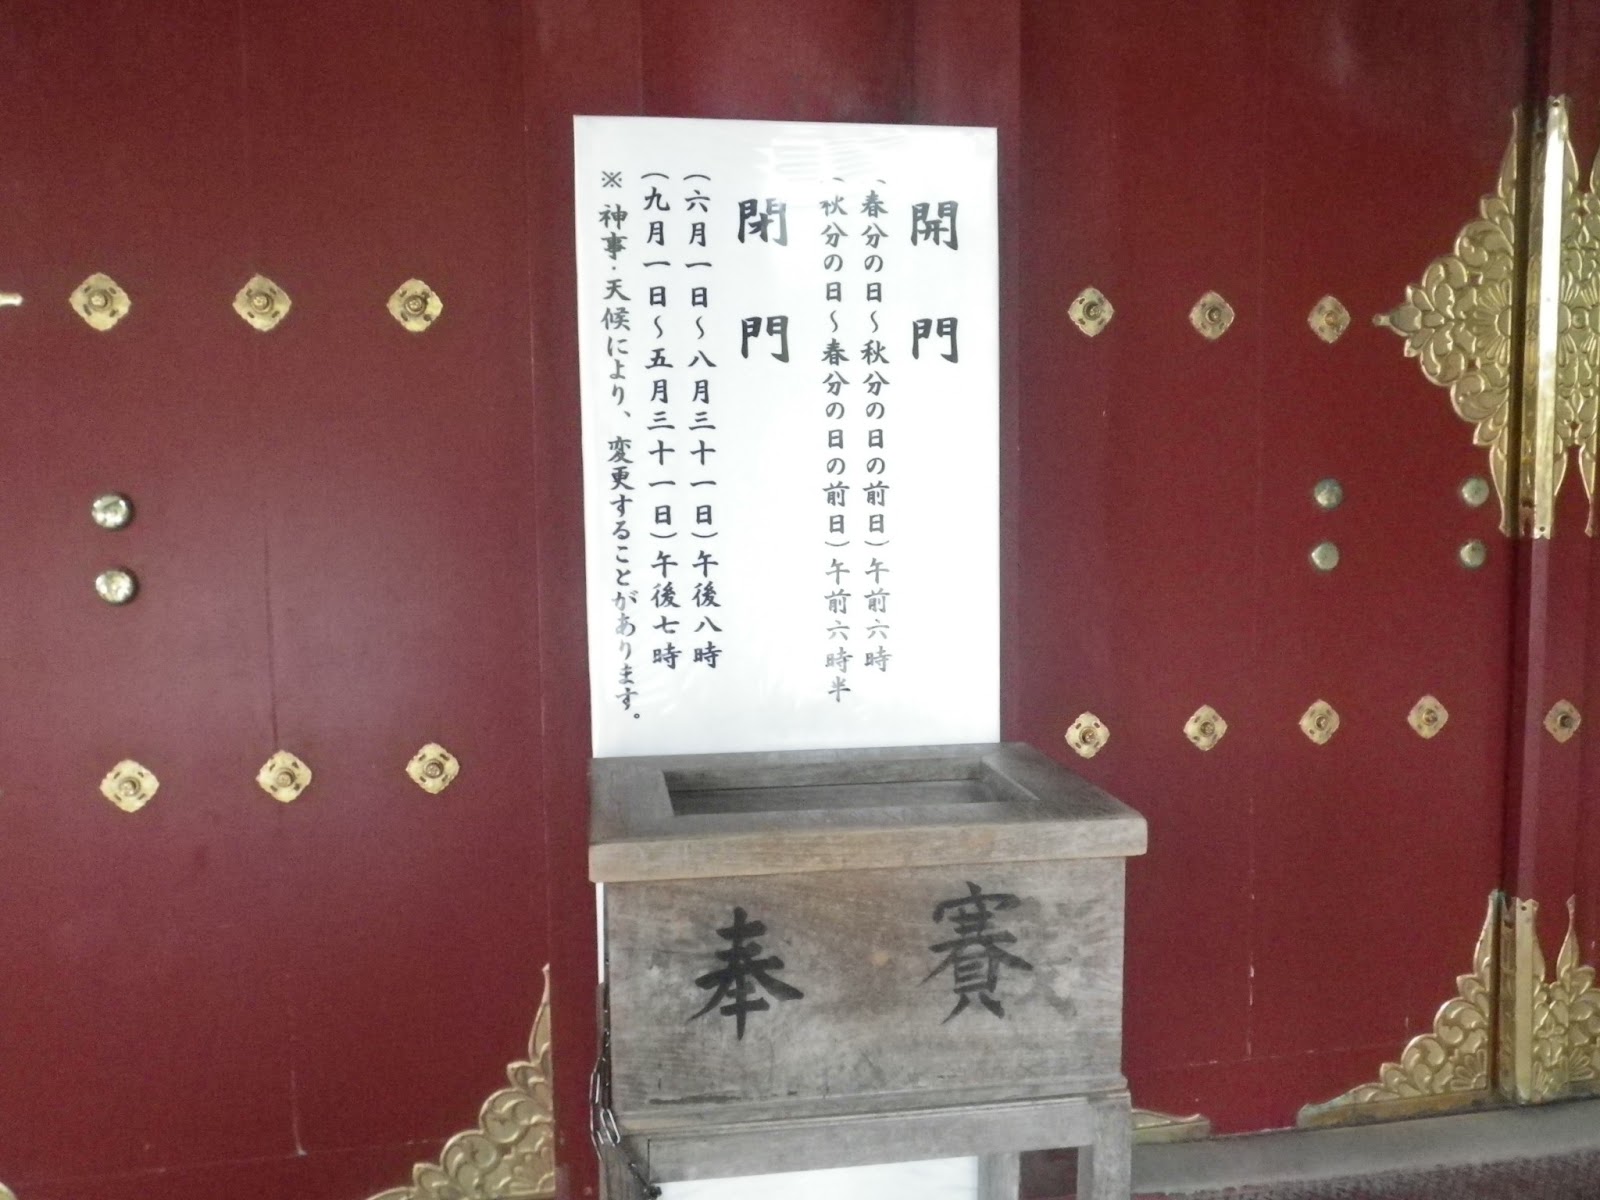 開門
(春分の日〜秋分の日の前日)午前六時
(秋分の日〜春分の日の前日)午前六時半
閉門
(六月一日〜八月三十一日)午後八時
(九月一日〜五月三十一日)午後七時
※神事・天候により、変更することがあります。
賽
奉